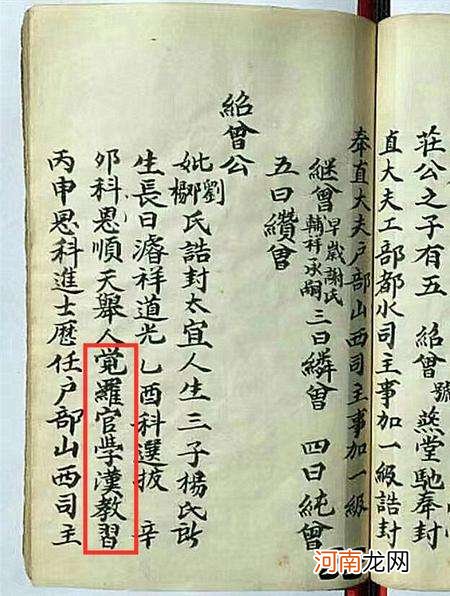 莊公之子有五 紹曾 號 燕堂馳奉封
直大夫工部都水司主事加一級誥封
奉直大夫戶部山西司主事加一級
継曾 早歲謝氏輔祥承嗣 三曰鏻曾 四曰純曾
五曰纘曾
紹曾公
妣劉氏誥封太宜人生三子楊氏所
生長曰濬祥道光乙酉科選拔 辛
夘科恩順天舉人覚羅官学漢教習
丙申恩科進士歷任戶部山西司主
河南龙网